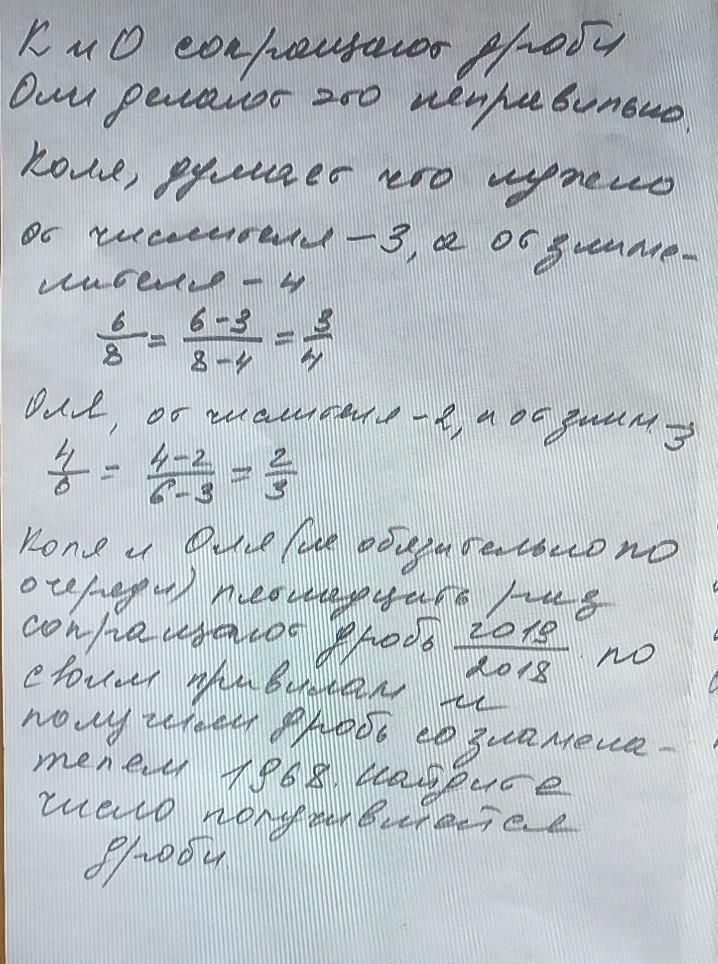 К и О сокращают дроби
Они делают это неправильно.
Коля, думает что нужно
от числителя – 3, а от знаме-
нателя – 4
6/8 = 6-3/8-4 = 3/4
Оля, от числителя – 2, а от знам. – 3
4/6 = 4-2/6-3 = 2/3
Коля и Оля (не обязательно по
очереди) пятнадцать раз
сокращают дробь 2019/2018 по
своим правилам и
получили дробь со знамена-
телем 1968. Найдите
число получившейся
дроби.